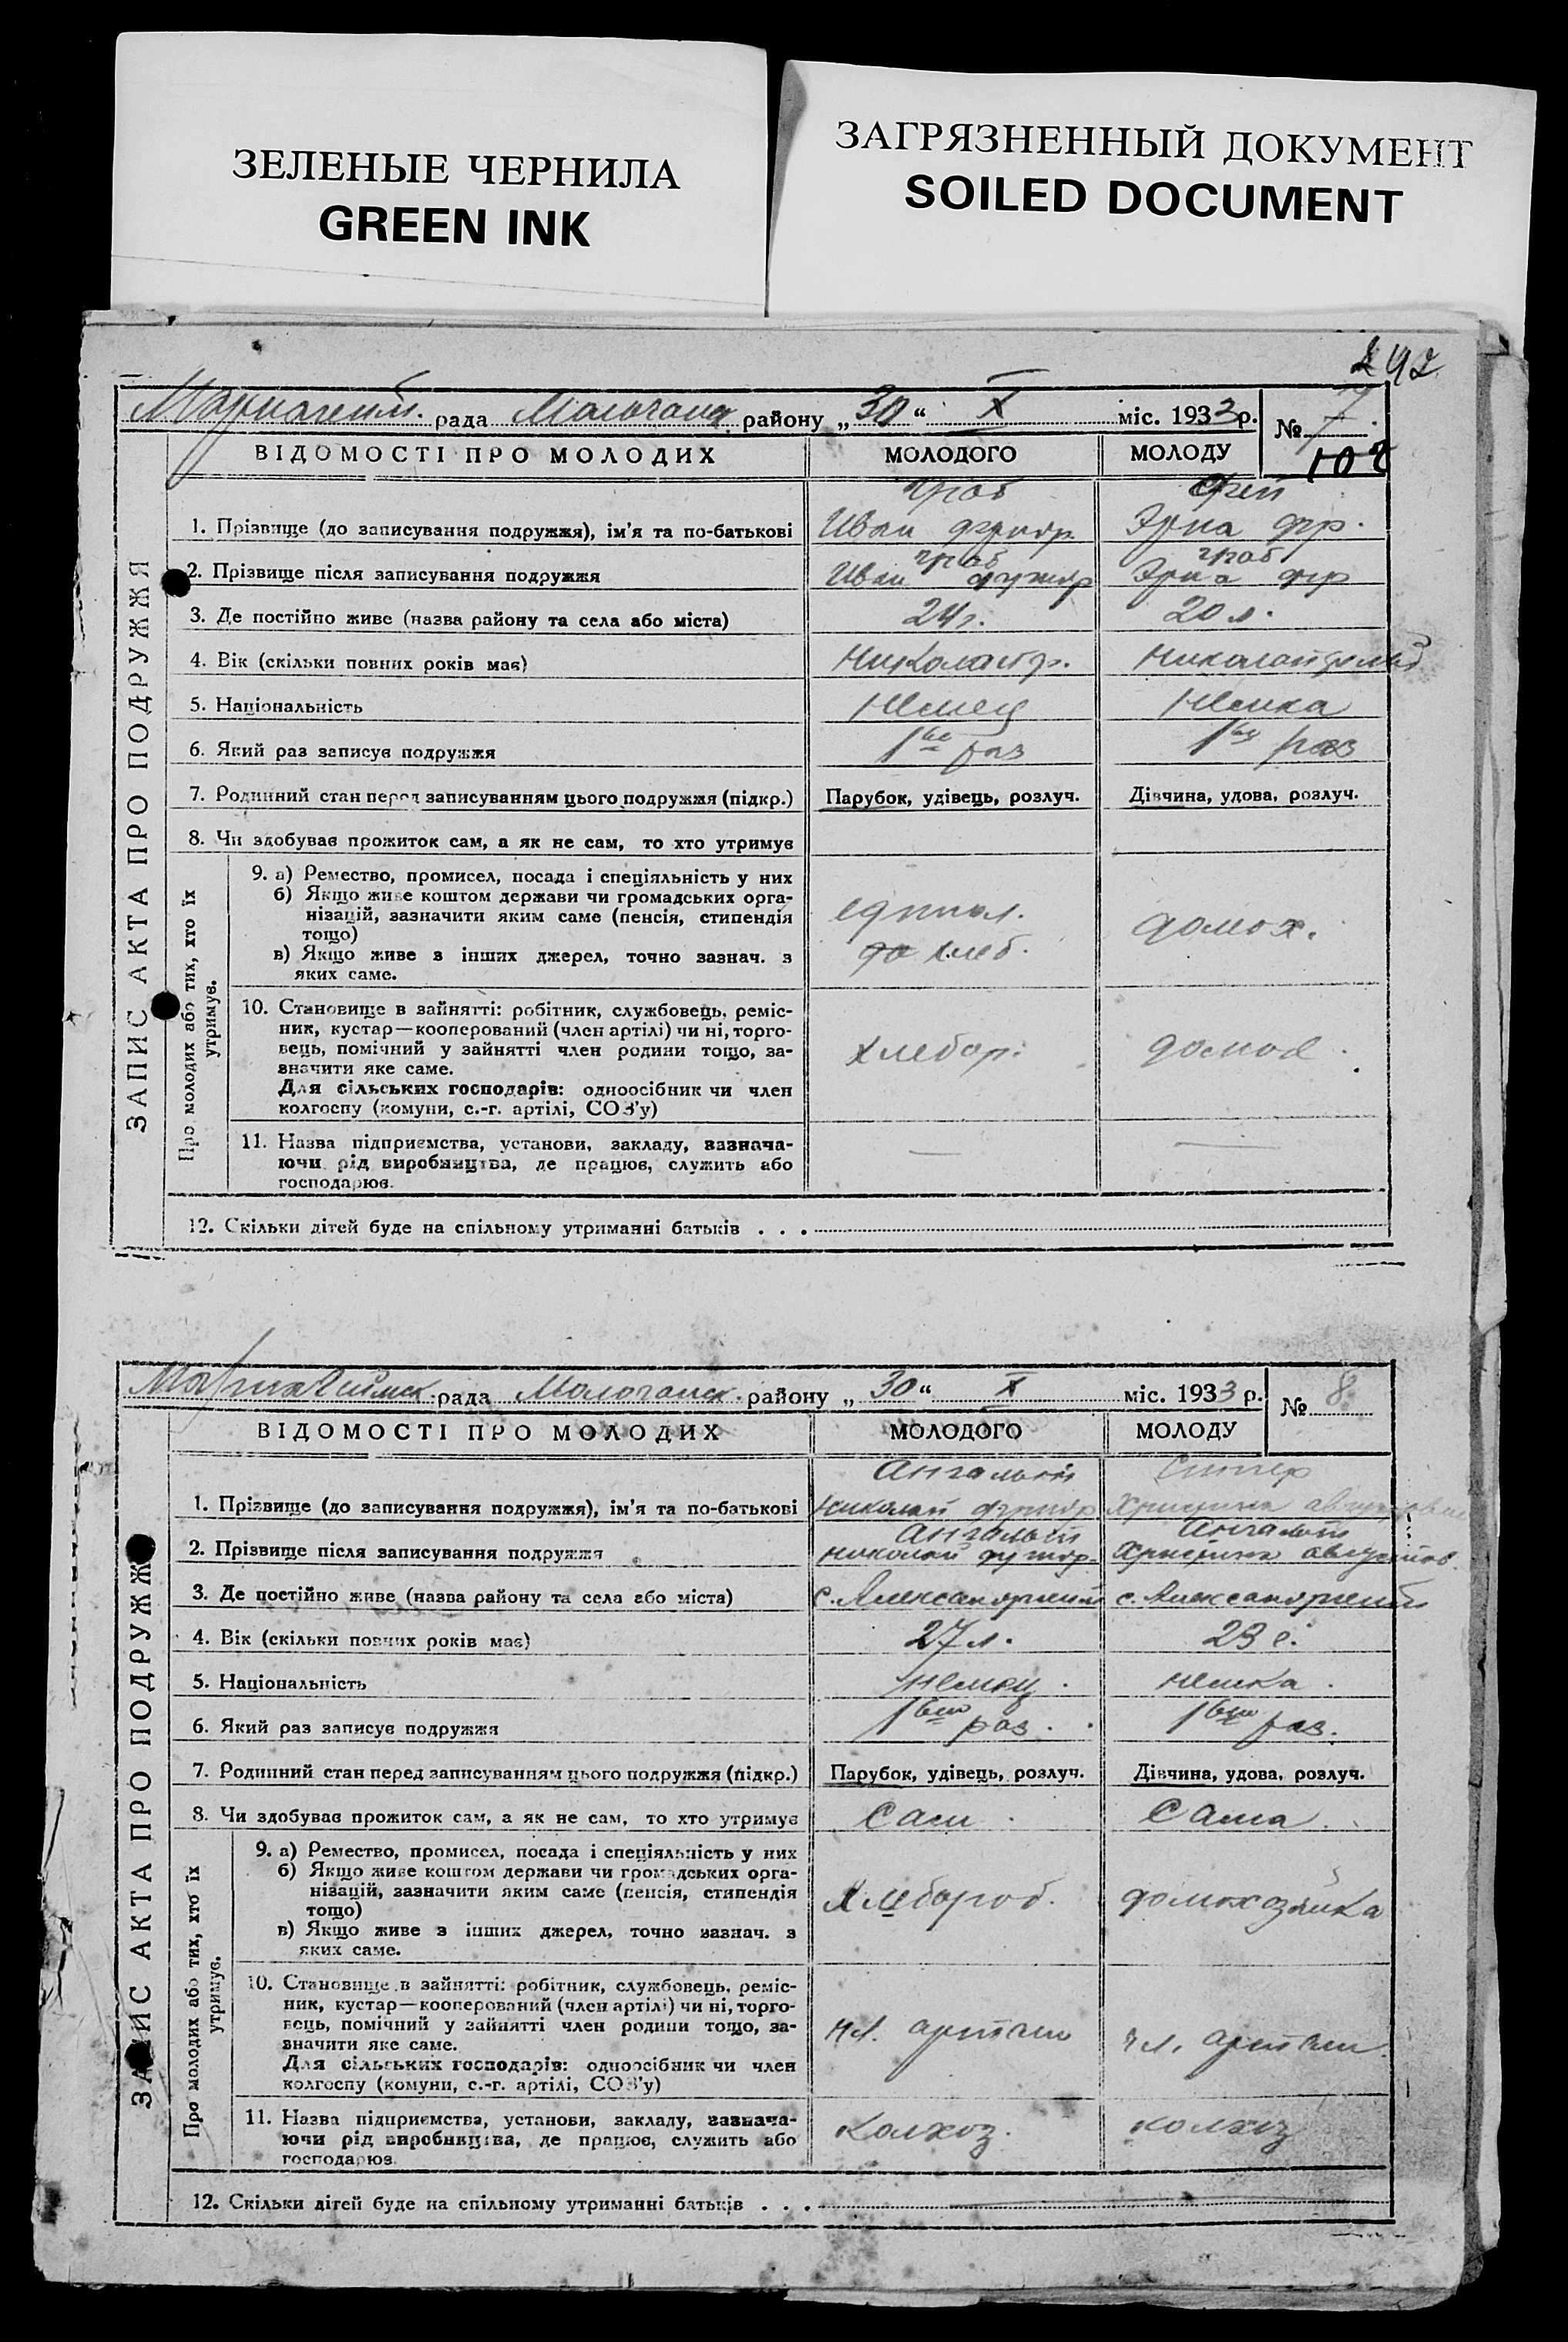 ЗЕЛЕНЫЕ ЧЕРНИЛА
GREEN INK
ЗАГРЯЗНЕННЫЙ ДОКУМЕНТ
SOILED DOCUMENT
рада района „30“ X міс. 1933 р. №
ВІДОМОСТІ ПРО МОЛОДИХ МОЛОДОГО МОЛОДУ
108
ЗАПИС АКТА ПРО ПОДРУЖЖЯ
Граб Фрей
1. Прізвище (до записування подружжя), ім'я та по-батькові Иван Эрна фр.
Граб Граб
2. Прізвище після записування подружжя Иван Эрна фр
3. Де постійно живе (назва району та села або міста) 24 г. 20 л.
4. Вік (скільки повних років має)
5. Національність Немец Немка
6. Який раз записує подружжя 1 раз 1 раз
7. Родинний стан перед записуванням цього подружжя (підкр.) Парубок, удівець, розлуч. Дівчина, удова, розлуч.
8. Чи здобував прожиток сам, а як не сам, то хто утримує
Про молодих або тих, хто їх утримує.
9. а) Ремество, промисел, посада і спеціяльність у них
б) Якщо живе коштом держави чи громадських орга-
нізацій, зазначити яким саме (пенсія, стипендія
тощо) домох.
в) Якщо живе з інших джерел, точно зазнач. з
яких саме.
10. Становище в зайнятті: робітник, службовець, реміс-
ник, кустар—кооперований (член артілі) чи ні, торго-
вець, помічний у зайнятті член родини тощо, за-
значити яке саме. хлебор.
Для сільських господарів: одноосібник чи член
колгоспу (комуни, с.-г. артілі, СОЗ'у)
11. Назва підприємства, установи, закладу, зазнача-
ючи рід виробництва, де працює, служить або
господарює.
12. Скільки дітей буде на спільному утриманні батьків . . .
рада Молочанск. району „30“ X міс. 1933 р. № 8
ВІДОМОСТІ ПРО МОЛОДИХ МОЛОДОГО МОЛОДУ
ЗАПИС АКТА ПРО ПОДРУЖЖЯ
1. Прізвище (до записування подружжя), ім'я та по-батькові Николай Христина
2. Прізвище після записування подружжя Николай Христина
3. Де постійно живе (назва району та села або міста) с. Александргейм с. Александргейм
4. Вік (скільки повних років має) 27 л. 23 г.
5. Національність немец. немка.
6. Який раз записує подружжя 1 раз. 1 раз.
7. Родинний стан перед записуванням цього подружжя (підкр.) Парубок, удівець, розлуч. Дівчина, удова, розлуч.
8. Чи здобував прожиток сам, а як не сам, то хто утримує Сам Сама
Про молодих або тих, хто їх утримує.
9. а) Ремество, промисел, посада і спеціяльність у них
б) Якщо живе коштом держави чи громадських орга-
нізацій, зазначити яким саме (пенсія, стипендія
тощо) Хлебороб. домохозяйка
в) Якщо живе з інших джерел, точно зазнач. з
яких саме.
10. Становище в зайнятті: робітник, службовець, реміс-
ник, кустар—кооперований (член артілі) чи ні, торго-
вець, помічний у зайнятті член родини тощо, за-
значити яке саме. чл. артели чл. артели
Для сільських господарів: одноосібник чи член
колгоспу (комуни, с.-г. артілі, СОЗ'у)
11. Назва підприємства, установи, закладу, зазнача-
ючи рід виробництва, де працює, служить або
господарює. Колхоз. колхоз
12. Скільки дітей буде на спільному утриманні батьків . . .